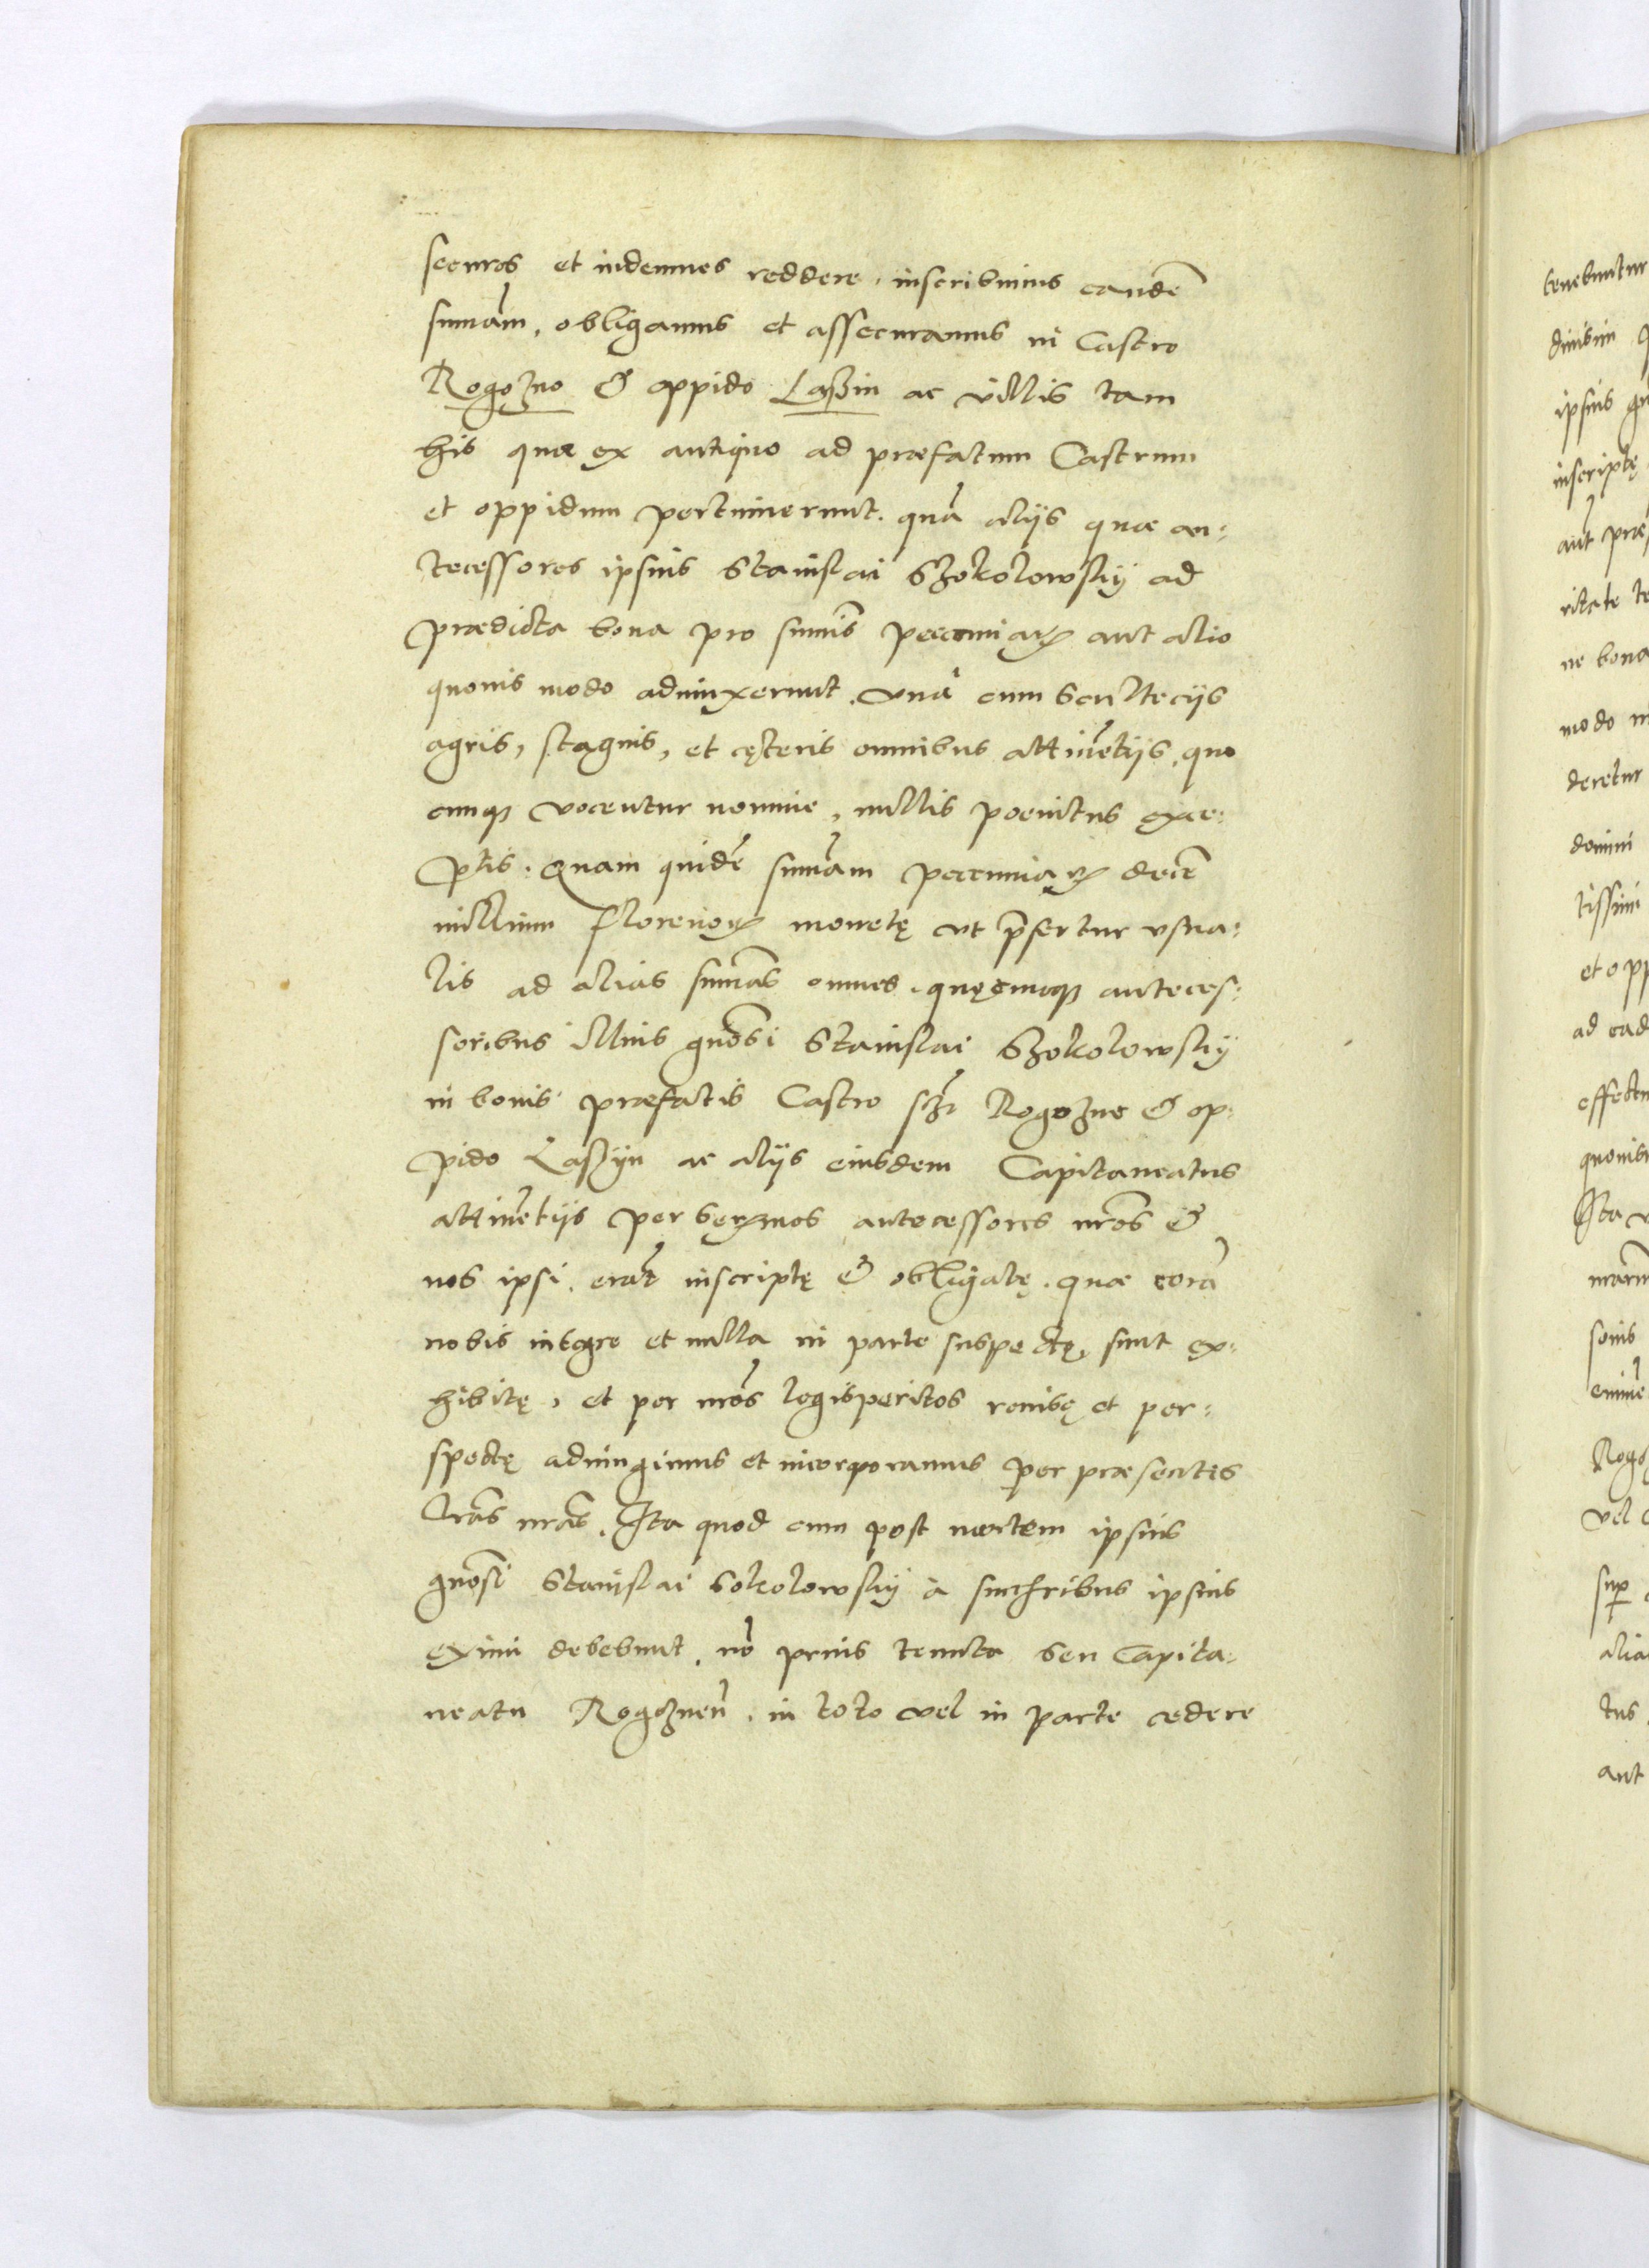 securos et indemnes reddere, inscribimus eandẽ
sum̃am, obligamus et assecuramus in Castro
Rogozno & oppido Laszin ac villis tam
his quae ex antiquo ad praefatum Castrum
et oppidum pertinuerunt. quã alijs quae an:
tecessores ipsius Stanislai Szokolowskij ad
praedicta bona pro summis pecuniarꝝ aut alio
quouis modo adiunxerunt. vnà cum Scultecijs
agris, stagnis, et cęteris omnibus attinẽtijs, quo
cunqꝫ vocentur nomine, nullis poenitus exce:
ptis. Quam quidẽ sum̃am pecuniarꝝ decẽ
millium Florenorꝝ monetę vt p̃fertur vsua:
lis ad alias sum̃as omnes. quęcunqꝫ anteces:
soribus illius gñosi Stanislai Szokolowskij
in bonis praefatis Castro scz̃ Rogozno & op:
pido Laszyn ac alijs eiusdem Capitaneatus
attinẽtijs per Serꝫmos antecessores nr̃os &
nos ipsi. erãt inscriptę & obligatę. quae corã
nobis integre et nulla in parte suspectę sunt ex:
hibitę, et per nr̃os legisperitos reuisę et per:
spectę adiungimus et incorporamus per praesentes
Lr̃as nr̃as. Ita quod cum post mortem ipsius
gñosi Stanislai Sokolowskij à successoribus ipsius
eximi debebunt. nõ prius tenuta seu Capita:
neatu Rogoznen̄. in toto vel in parte cedere
tenebuntur
ipsius
inscriptę
aut
ne bona
modo
deretur
domini
tissimi
et opp
ad ead
effectu
Ita
sonis
Rogoz
vel
sup
alia
tus
aut